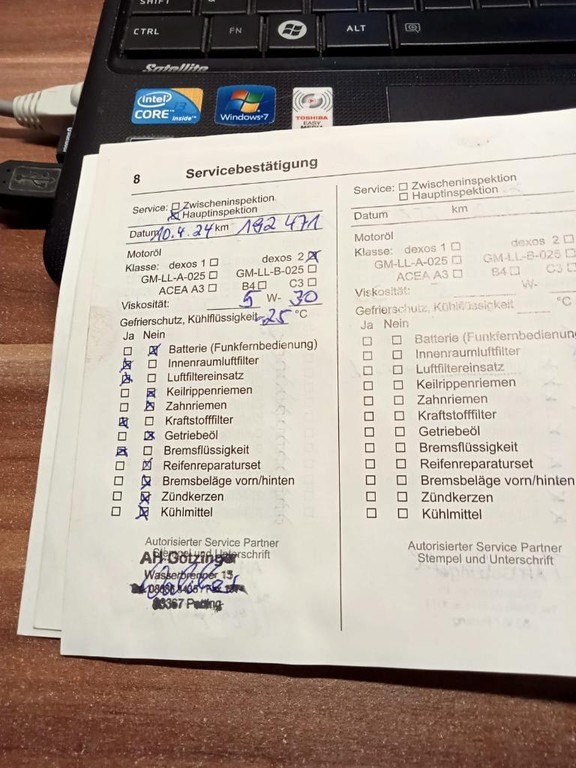 SHIFT
CTRL
FN
ALT
Satellite
intel
CORE i3
inside
Windows 7
TOSHIBA
EASY
8 Servicebestätigung
Service: Zwischeninspektion
Hauptinspektion
Datum 10.4.24 km 192 471
Motoröl
Klasse: dexos 1 dexos 2
GM-LL-A-025 GM-LL-B-025
ACEA A3 B4 C3
Viskosität: 5 W- 30
Gefrierschutz, Kühlflüssigkeit -25 °C
Ja Nein
Batterie (Funkfernbedienung)
Innenraumluftfilter
Luftfiltereinsatz
Keilrippenriemen
Zahnriemen
Kraftstofffilter
Getriebeöl
Bremsflüssigkeit
Reifenreparaturset
Bremsbeläge vorn/hinten
Zündkerzen
Kühlmittel
Autorisierter Service Partner
Stempel und Unterschrift
AH Götzinger
Petting
Service: Zwischeninspektion
Hauptinspektion
Datum km
Motoröl
Klasse: dexos 1 dexos 2
GM-LL-A-025 GM-LL-B-025
ACEA A3 B4 C3
Viskosität: W-
Gefrierschutz, Kühlflüssigkeit °C
Ja Nein
Batterie (Funkfernbedienung
Innenraumluftfilter
Luftfiltereinsatz
Keilrippenriemen
Zahnriemen
Kraftstofffilter
Getriebeöl
Bremsflüssigkeit
Reifenreparaturset
Bremsbeläge vorn/hinten
Zündkerzen
Kühlmittel
Autorisierter Service Partner
Stempel und Unterschrift